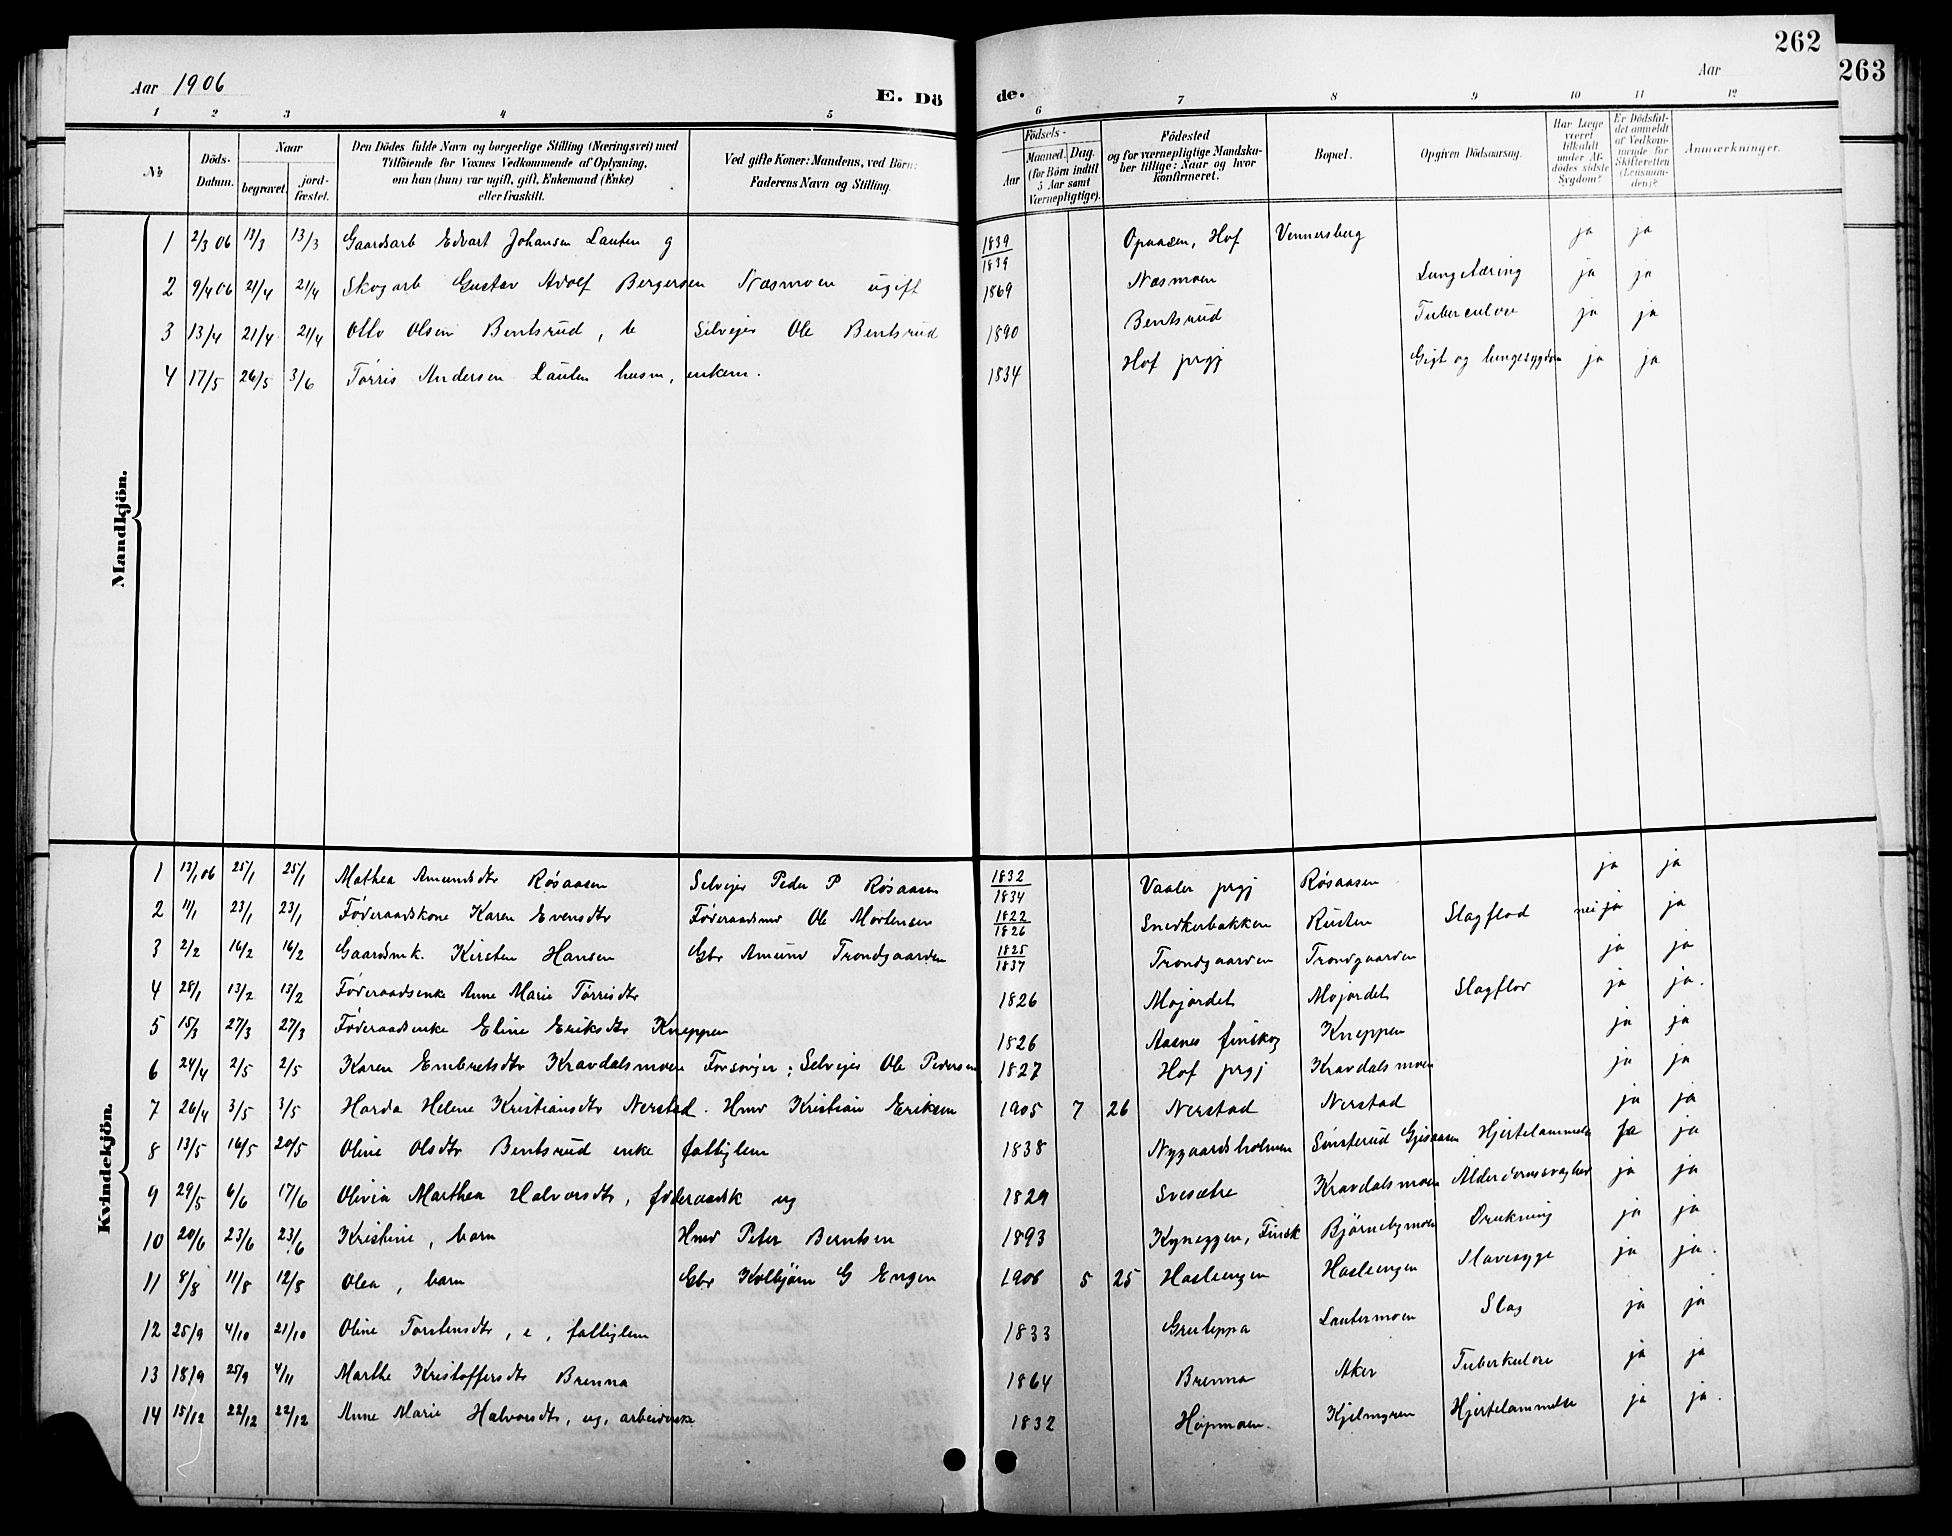 262
263
Aar 1906 E. Dö de. Aar
1 2 3 4 5 6 7 8 9 10 11 12
№ Döds-Datum. Naar begravet. jord-fæstet. Den Dödes fulde Navn og borgerlige Stilling (Næringsvei) med Tilföiende for Voxnes Vedkommende af Oplysning, om han (hun) var ugift, gift, Enkemand (Enke) eller fraskilt. Ved gifte Koner: Mandens, ved Börn: Faderens Navn og Stilling. Födsels- Aar Maaned. Dag. (for Börn indtil 5 Aar samt Værnepligtige). Födested og for værnepligtige Mandska-ber tillige: Naar og hvor konfirmeret. Bopæl. Opgiven Dödsaarsag. Har Læge været tilkaldt under Af-dödes sidste Sygdom? Er Dödsfal-det anmeldt af Vedkom-mende for Skifteretten (Lensman-den)? Anmærkninger.
Mandkjön.
1 2/3 06 13/3 13/3 Gaardsarb Edvart Johansen Lauten g 1839 1839 Opaasen, Hof Vennersberg ja ja
2 9/4 06 21/4 21/4 Skogarb Gustav Adolf Bergersen Næsmoen ugift 1869 Næsmoen Lungetæring ja ja
3 13/4 21/4 21/4 Otto Olsen Bentsrud, b Selvejer Ole Bentsrud 1890 Bentsrud Tuberculose ja ja
4 17/5 26/5 3/6 Tørris Andersen Lauten husm, enkem. 1834 Hof prgj Gigt og lungesygdom ja ja
Kvindekjön.
1 13/1 06 25/1 25/1 Mathea Amundsdtr Røsaasen Selvejer Peder P Røsaasen 1832 1834 Vaaler prgj Røsaasen ja ja
2 11/1 23/1 23/1 Føderaadskone Karen Evensdtr Føderaadsmd Ole Mortensen 1822 1826 Snedkerbakken Rusten Slagflod nei ja ja
3 2/2 16/2 16/2 Gaardmk. Kirsten Hansen Gbr Amund Trondgaarden 1825 1837 Trondgaarden Trondgaarden ja ja
4 28/1 13/2 13/2 Føderaadsenke Anne Marie Tørrisdtr 1826 Mojordet Mojordet Slagflod ja ja.
5 15/3 27/3 27/3 Føderaadsenke Eline Eriksdtr Kneppen 1826 Aasnes finskog Kneppen ja ja
6 24/4 2/5 2/5 Karen Embretsdtr Kravdalsmoen Forsørger: Selvejer Ole Pedersen 1827 Hof prgj Kravdalsmoen ja ja
7 26/4 3/5 3/5 Harda Helene Kristiansdtr Nerstad. Hmd Kristian Eriksen 1905 7 26 Nerstad Nerstad ja ja
8 13/5 16/5 20/5 Oline Olsdtr Bentsrud enke fattiglem 1838 Nygaardsholmen Sønsterud Hjertelammelse ja ja
9 29/5 6/6 17/6 Olivia Marthea Halvorsdtr, føderaadsk ug 1829 Svesætre Kravdalsmoen Alderdomssvaghed ja ja
10 20/6 23/6 23/6 Kristine, barn Hmd Peter Berntsen 1893 Kyneggen, Finsk Bjørnebymoen Drukning ja ja
11 8/8 11/8 12/8 Olea, barn Gbr Kolbjørn G Engen 1906 5 25 Hasleengen Hasleengen Mavesyge ja ja.
12 25/9 4/10 21/10 Oline Torstensdtr, e, fattiglem 1833 Grubeppa Lautermoen Slag ja ja
13 18/9 25/9 4/11 Marthe Kristoffersdtr Brenna 1864 Brenna Aker Tuberkulose ja ja
14 15/12 22/12 22/12 Anne Marie Halvorsdtr, ug, arbeiderske 1832 Hopmoen. Kjelmyren Hjertelammelse ja ja.